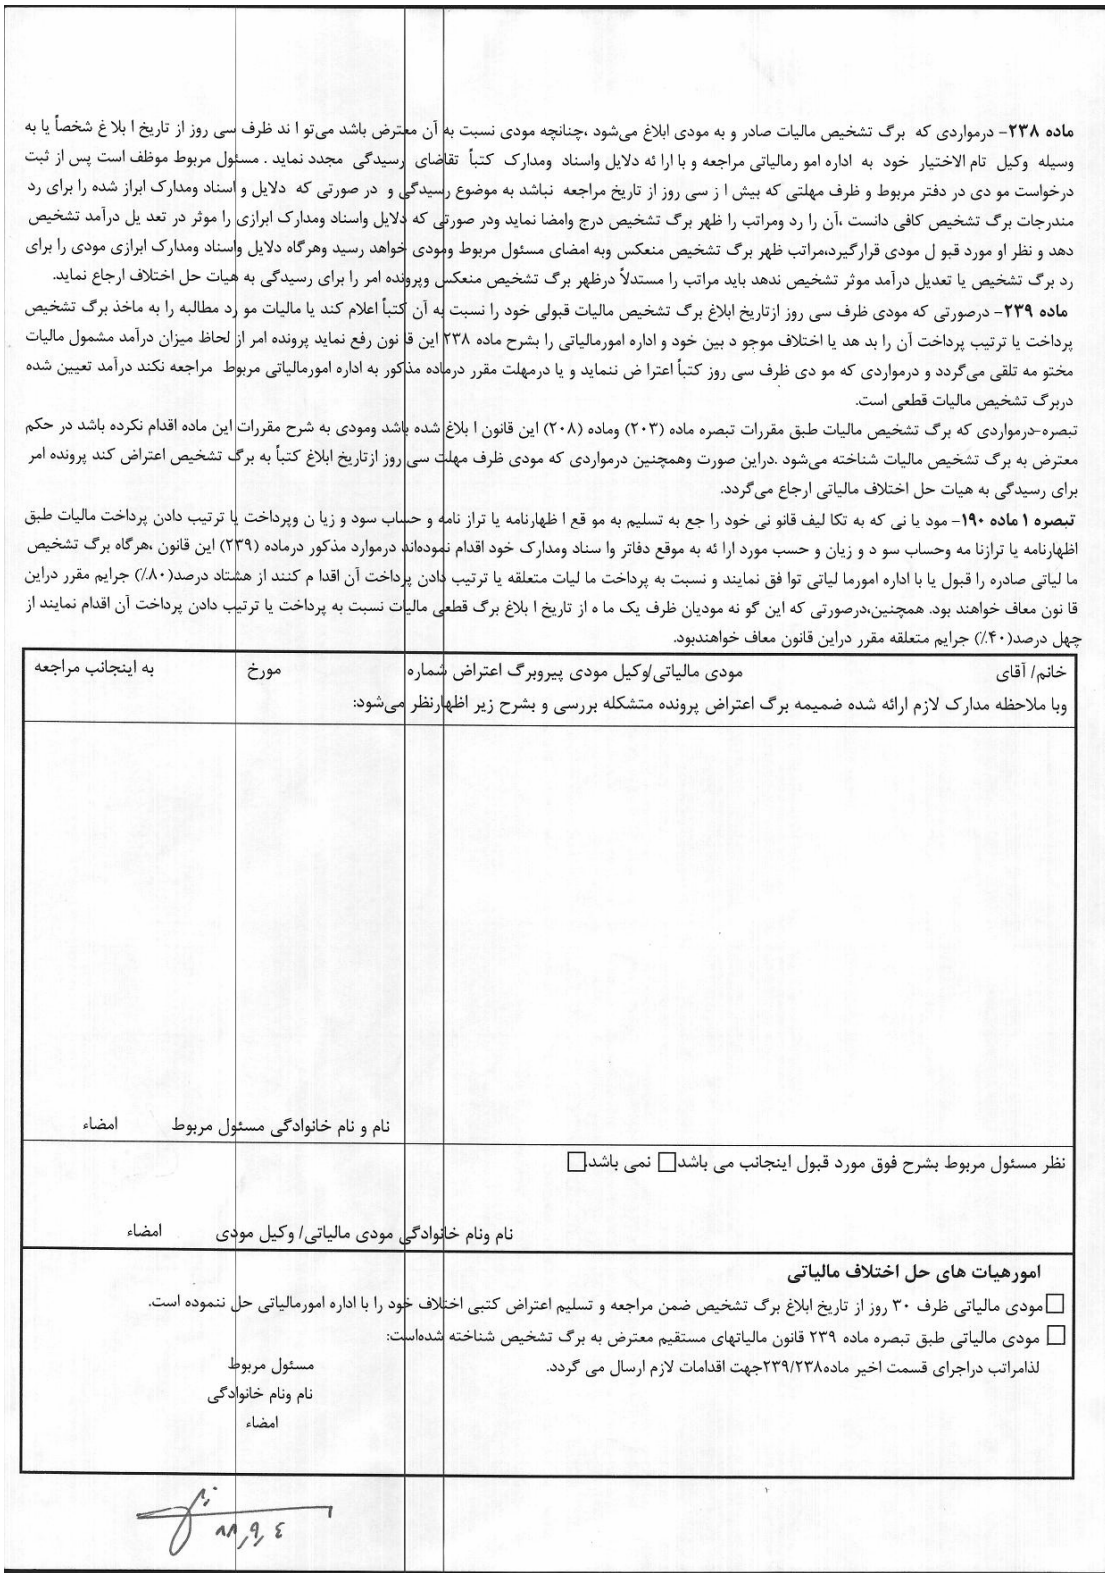 ماده ۲۳۸- درمواردی که برگ تشخیص مالیات صادر و به مودی ابلاغ می‌شود ،چنانچه مودی نسبت به آن معترض باشد می‌تو ا ند ظرف سی روز از تاریخ ا بلا غ شخصاً یا به
وسیله وکیل تام الاختیار خود به اداره امو رمالیاتی مراجعه و با ارا ئه دلایل واسناد ومدارک کتباً تقاضای رسیدگی مجدد نماید . مسئول مربوط موظف است پس از ثبت
درخواست مو دی در دفتر مربوط و ظرف مهلتی که بیش ا ز سی روز از تاریخ مراجعه نباشد به موضوع رسیدگی و در صورتی که دلایل و اسناد ومدارک ابراز شده را برای رد
مندرجات برگ تشخیص کافی دانست ،آن را رد ومراتب را ظهر برگ تشخیص درج وامضا نماید ودر صورتی که دلایل واسناد ومدارک ابرازی را موثر در تعد یل درآمد تشخیص
دهد و نظر او مورد قبو ل مودی قرارگیرد،مراتب ظهر برگ تشخیص منعکس وبه امضای مسئول مربوط ومودی خواهد رسید وهرگاه دلایل واسناد ومدارک ابرازی مودی را برای
رد برگ تشخیص یا تعدیل درآمد موثر تشخیص ندهد باید مراتب را مستدلاً درظهر برگ تشخیص منعکس وپرونده امر را برای رسیدگی به هیات حل اختلاف ارجاع نماید.
ماده ۲۳۹- درصورتی که مودی ظرف سی روز ازتاریخ ابلاغ برگ تشخیص مالیات قبولی خود را نسبت به آن کتباً اعلام کند یا مالیات مو رد مطالبه را به ماخذ برگ تشخیص
پرداخت یا ترتیب پرداخت آن را بد هد یا اختلاف موجو د بین خود و اداره امورمالیاتی را بشرح ماده ۲۳۸ این قا نون رفع نماید پرونده امر از لحاظ میزان درآمد مشمول مالیات
مختو مه تلقی می‌گردد و درمواردی که مو دی ظرف سی روز کتباً اعترا ض ننماید و یا درمهلت مقرر درماده مذکور به اداره امورمالیاتی مربوط مراجعه نکند درآمد تعیین شده
دربرگ تشخیص مالیات قطعی است.
تبصره-درمواردی که برگ تشخیص مالیات طبق مقررات تبصره ماده (۲۰۳) وماده (۲۰۸) این قانون ا بلاغ شده باشد ومودی به شرح مقررات این ماده اقدام نکرده باشد در حکم
معترض به برگ تشخیص مالیات شناخته می‌شود .دراین صورت وهمچنین درمواردی که مودی ظرف مهلت سی روز ازتاریخ ابلاغ کتباً به برگ تشخیص اعتراض کند پرونده امر
برای رسیدگی به هیات حل اختلاف مالیاتی ارجاع می‌گردد.
تبصره ۱ ماده ۱۹۰- مود یا نی که به تکا لیف قانو نی خود را جع به تسلیم به مو قع ا ظهارنامه یا تراز نامه و حساب سود و زیا ن وپرداخت یا ترتیب دادن پرداخت مالیات طبق
اظهارنامه یا ترازنا مه وحساب سو د و زیان و حسب مورد ارا ئه به موقع دفاتر وا سناد ومدارک خود اقدام نموده‌اند درموارد مذکور درماده (۲۳۹) این قانون ،هرگاه برگ تشخیص
ما لیاتی صادره را قبول یا با اداره امورما لیاتی توا فق نمایند و نسبت به پرداخت ما لیات متعلقه یا ترتیب دادن پرداخت آن اقدا م کنند از هشتاد درصد(۸۰٪) جرایم مقرر دراین
قا نون معاف خواهند بود. همچنین،درصورتی که این گو نه مودیان ظرف یک ما ه از تاریخ ا بلاغ برگ قطعی مالیات نسبت به پرداخت یا ترتیب دادن پرداخت آن اقدام نمایند از
چهل درصد(۴۰٪) جرایم متعلقه مقرر دراین قانون معاف خواهندبود.
خانم/ آقای مودی مالیاتی/وکیل مودی پیروبرگ اعتراض شماره مورخ به اینجانب مراجعه
وبا ملاحظه مدارک لازم ارائه شده ضمیمه برگ اعتراض پرونده متشکله بررسی و بشرح زیر اظهارنظر می‌شود:
نام و نام خانوادگی مسئول مربوط امضاء
نظر مسئول مربوط بشرح فوق مورد قبول اینجانب می باشد☐ نمی باشد.☐
نام ونام خانوادگی مودی مالیاتی/ وکیل مودی امضاء
امورهیات های حل اختلاف مالیاتی
☐مودی مالیاتی ظرف ۳۰ روز از تاریخ ابلاغ برگ تشخیص ضمن مراجعه و تسلیم اعتراض کتبی اختلاف خود را با اداره امورمالیاتی حل ننموده است.
☐ مودی مالیاتی طبق تبصره ماده ۲۳۹ قانون مالیاتهای مستقیم معترض به برگ تشخیص شناخته شده‌است:
لذامراتب دراجرای قسمت اخیر ماده۲۳۹/۲۳۸جهت اقدامات لازم ارسال می گردد.
مسئول مربوط
نام ونام خانوادگی
امضاء
۸۸,۹,٤